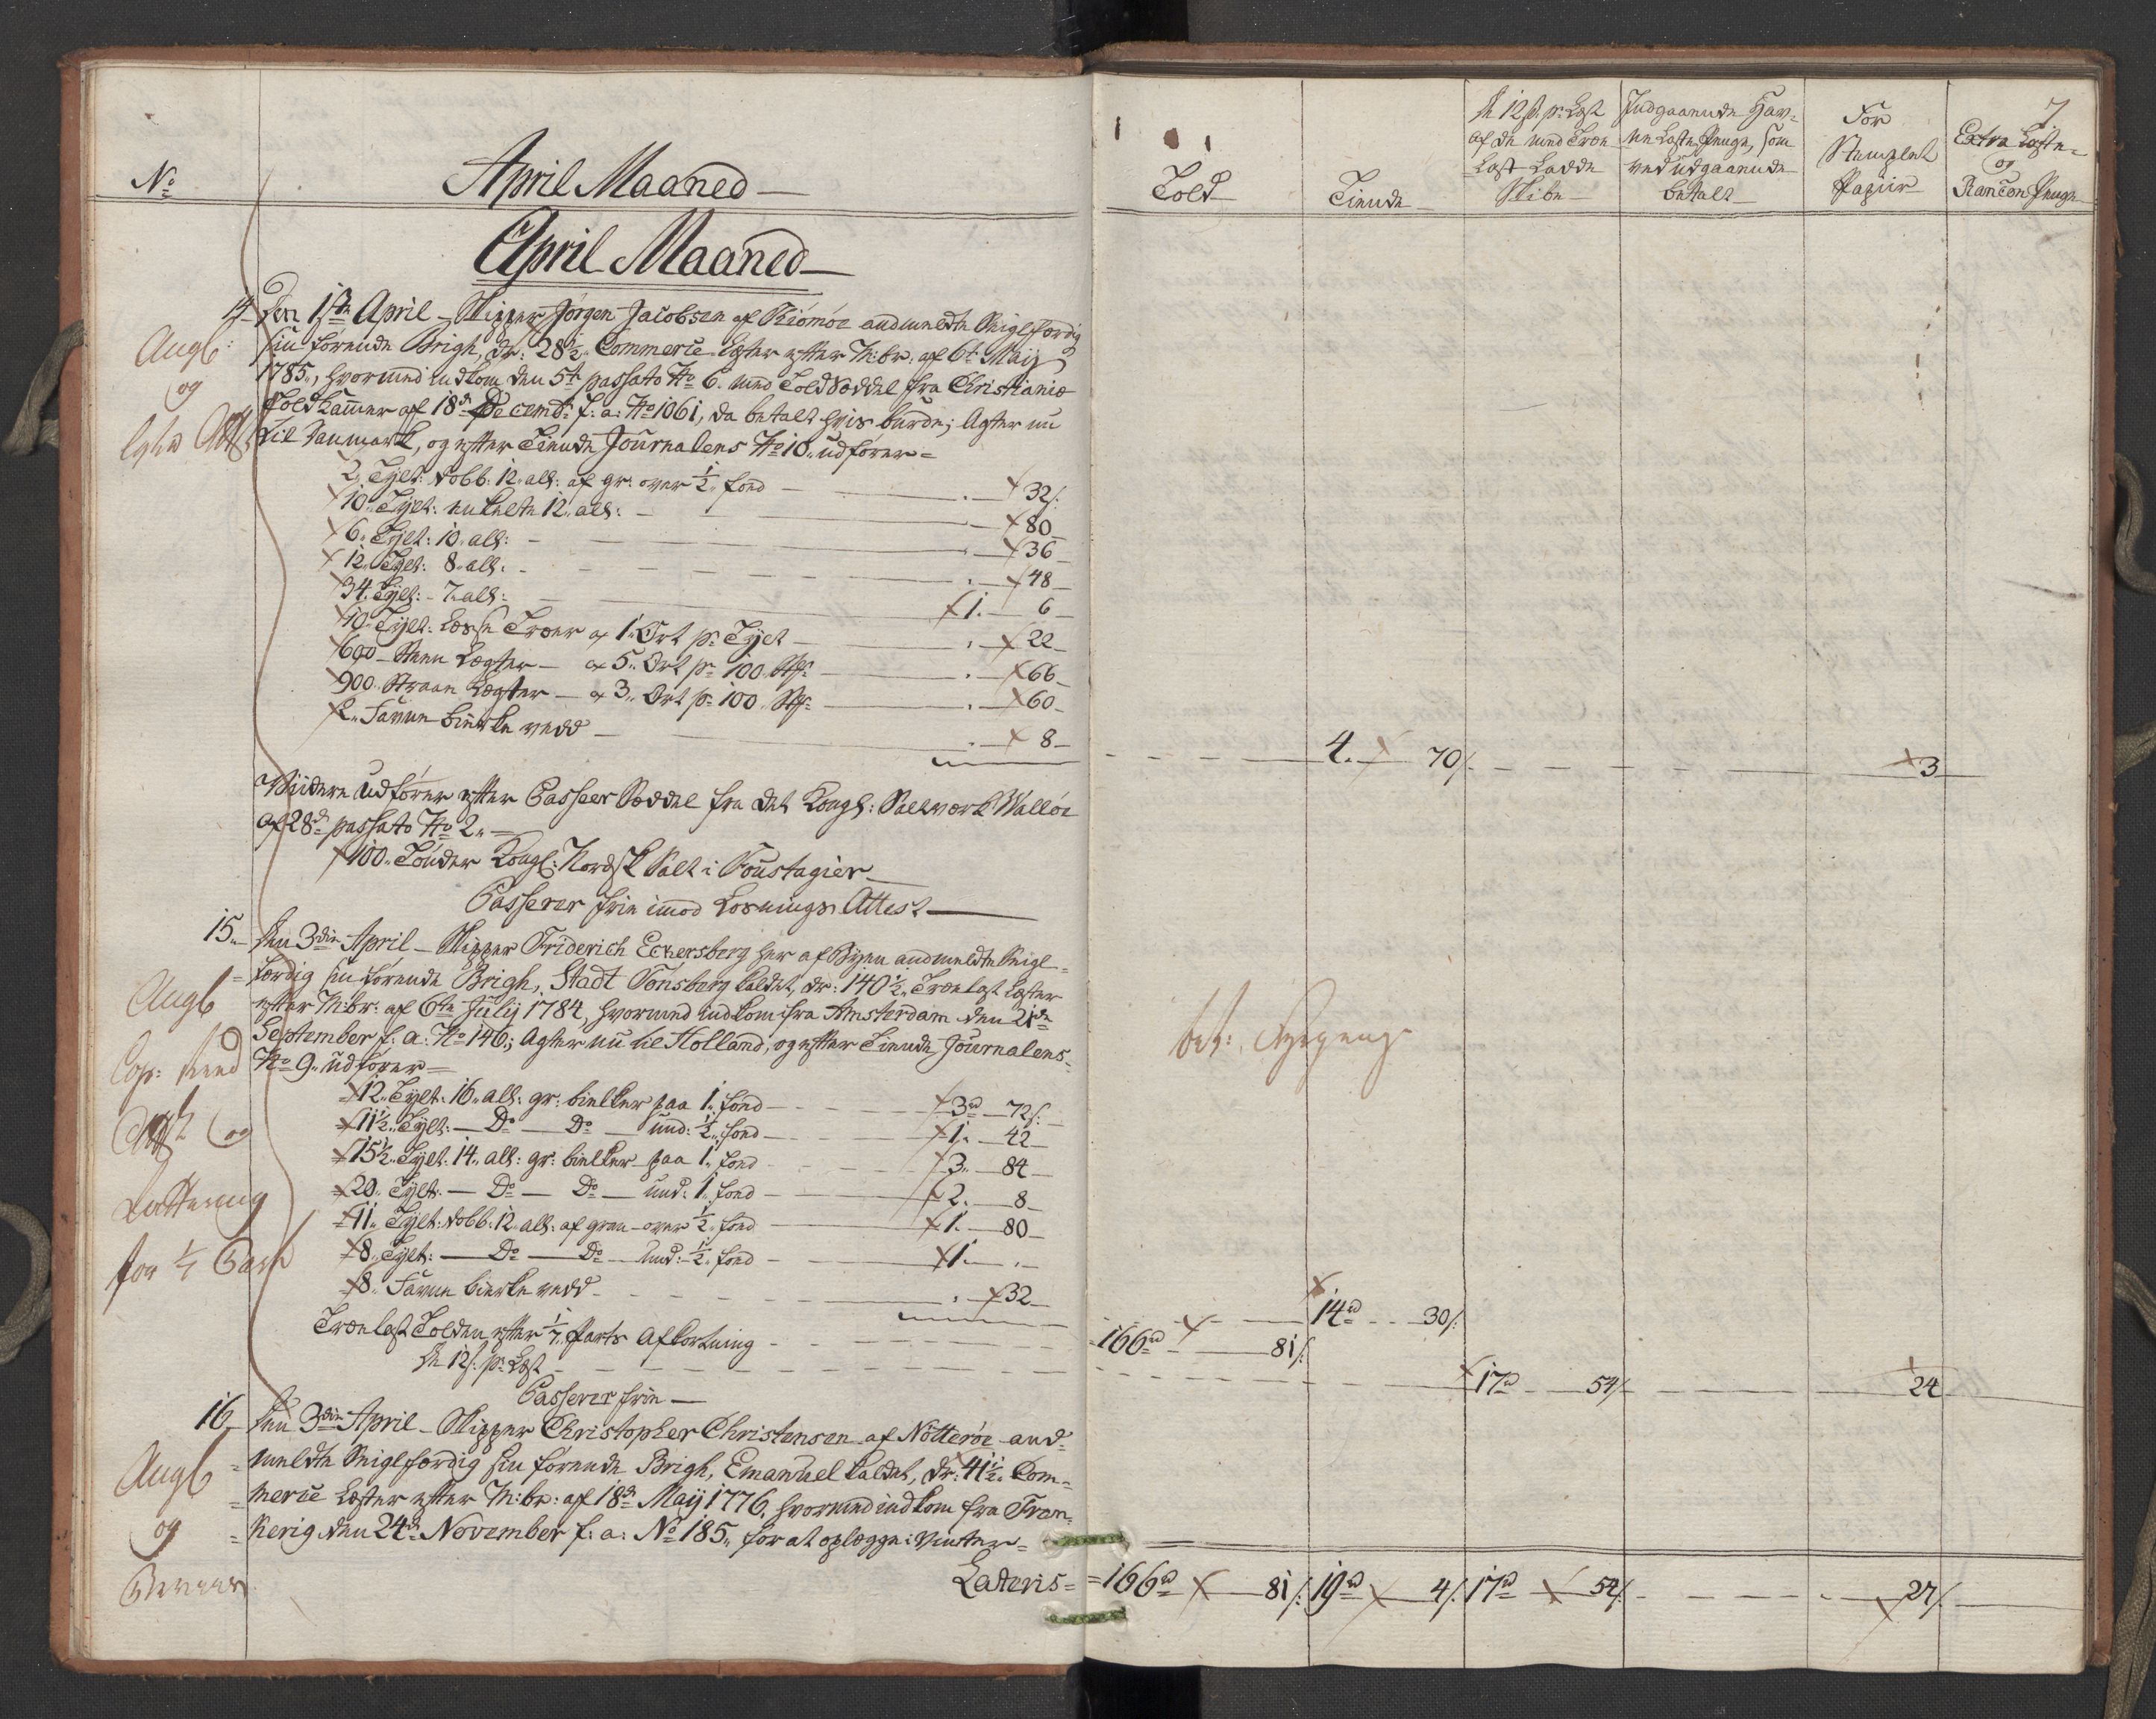 No
April Maaned
April Maaned
14 Den 1ste April - Skipper Jørgen Jacobsen af Tiømøe andmeldte Seiglfærdig
sin førende Brigh, dr: 28½ Commerce Læster efter M:br: af 6t Maij
1785, hvormed indkom den 5t passato No 6. med Toldsæddel fra Christiania
Toldkammer af 18d Decembr f: a: No 1061, da betalt hvis burde; Agter nu
til Danmark, og efter Tiende Journalens No 10 udfører =
Angb:
og
2 Tylt: dobb: 12 all: af gr: over ½ fond - 32/:
10 Tylt: enkelte 12 all: - 80
6 Tylt: 10 all: - 36
12 Tylt: 8 all: - 48
34 Tylt: 7 all: - 1. 6
10 Tylt: Losse Træer a 1 Ort pr Tylt - 22
600 Steen Lægter - a 5 Ort pr 100 Stk: - 66
900 Straae Lægter - a 3 Ort pr 100 Stk: - 60
2 Favne birke vedd - 8
Viidere udfører efter Passeer Sæddel fra det Kongl: Saltværk Walløe
af 28d passato No 2 =
100 Tønder Kongl: Nordsk Salt i Foustagier
Passerer frie imod Losnings Attest
15 Den 3die April - Skipper Friderich Eckersberg her af Byen andmeldte Seigl-
færdig sin førende Brigh, Stadt Tønsberg kaldet, dr: 140½ Trælast Læster
efter M:br: af 6te Julij 1784, hvormed indkom fra Amsterdam den 21de
September f: a: No 146; Agter nu til Holland, og efter Tiende Journalens
No 9 udfører =
Angb
Cop: med
Attest og
for 1/7 Part
12 Tylt: 16 all: gr: bielker paa 1 fond - 3rd 72/:
11½ Tylt: Do Do und: ½ fond - 1. 42
15½ Tylt: 14 all: gr: bielker paa 1 fond - 3. 84
20 Tylt: Do Do und: 1 fond - 2. 8
11 Tylt: dobb: 12 all: af gran over ½ fond - 1. 80
8 Tylt: Do Do und: ½ fond - 1.
8 Favne birke vedd - 32
Trælast Tolden efter 1/7 Parts Afkortning
De 12/: pr Læst
Passerer frie
16 Den 3die April - Skipper Christopher Christensen af Nøtterøe and-
meldte Seiglfærdig sin førende Brigh, Emanuel kaldet, dr: 41½ Com-
merce Læster efter M:br: af 18d Maij 1776, hvormed indkom fra Fran-
kerig den 24d November f: a: No 185, for at oplægge i Vinter =
Angb
og
Lateris =
7
Told
Tiende
De 12/: pr Læst
af de med Træe
Last Ladde
Skibe
Indgaaende Hav-
ne Læste Penge, som
ved udgaaende
betalt
For
Stemplet
Papiir
Extra Læste-
og
Rançon Penge
4. 70/: 3
14rd 30/:
166rd 81/:
17rd 54/: 24
166rd 81/: 19rd 4/: 17rd 54/: 27/: